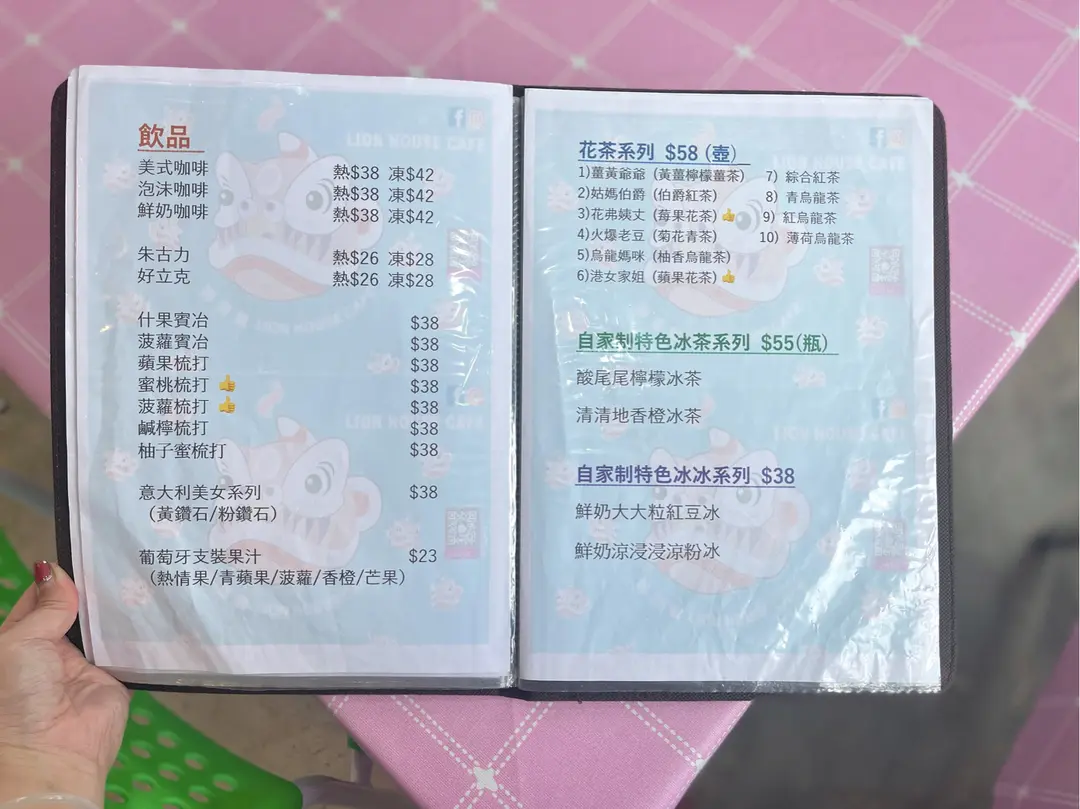 飲品
美式咖啡 熱$38 凍$42
泡沫咖啡 熱$38 凍$42
鮮奶咖啡 熱$38 凍$42
朱古力 熱$26 凍$28
好立克 熱$26 凍$28
什果賓冶 $38
菠蘿賓冶 $38
蘋果梳打 $38
蜜桃梳打👍 $38
菠蘿梳打👍 $38
鹹檸梳打 $38
柚子蜜梳打 $38
意大利美女系列 $38
（黃鑽石/粉鑽石）
葡萄牙支裝果汁 $23
（熱情果/青蘋果/菠蘿/香橙/芒果）
LION HOUSE CAFE
LION HOUSE CAFE
花茶系列 $58 (壺)
1)薑黃爺爺（黃薑檸檬薑茶） 7) 綜合紅茶
2)姑媽伯爵（伯爵紅茶） 8) 青烏龍茶
3)花弗姨丈（莓果花茶）👍 9) 紅烏龍茶
4)火爆老豆（菊花青茶） 10) 薄荷烏龍茶
5)烏龍媽咪（柚香烏龍茶）
6)港女家姐（蘋果花茶）👍
自家制特色冰茶系列 $55(瓶)
酸尾尾檸檬冰茶
清清地香橙冰茶
自家制特色冰冰系列 $38
鮮奶大大粒紅豆冰
鮮奶涼浸浸涼粉冰